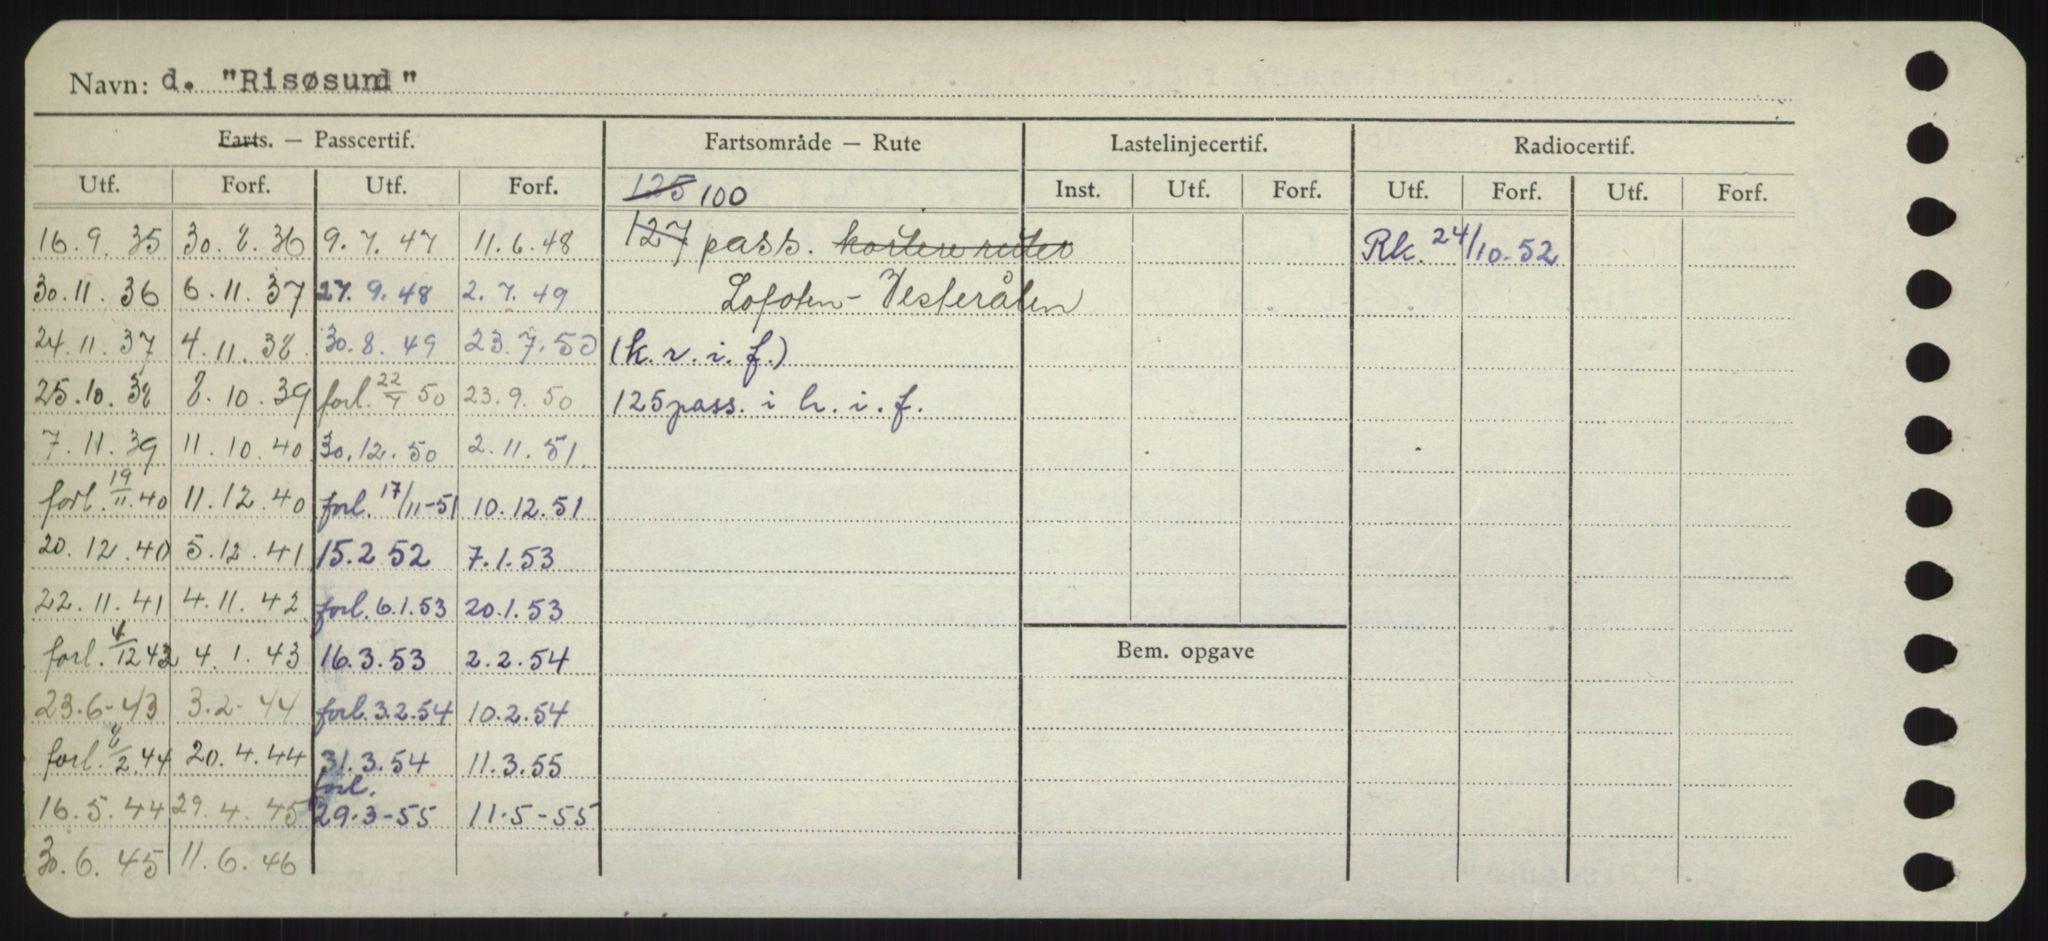 Navn: d. "Risøsund"
Farts. — Passcertif. Fartsområde — Rute Lastelinjecertif. Radiocertif.
Utf. Forf. Utf. Forf. 125 100 Inst. Utf. Forf. Utf. Forf. Utf. Forf.
16.9.35 30.8.36 9.7.47 11.6.48 127 pass. kortere ruter Rk. 24/10-52
30.11.36 6.11.37 27.9.48 2.7.49 Lofoten - Vesterålen
24.11.37 4.11.38 30.8.49 23.7.50 (k.r.i.f.)
25.10.38 8.10.39 forl. 22/7 50 23.9.50 125 pass. i h.i.f.
7.11.39 11.10.40 30.12.50 2.11.51
forl. 19/11.40 11.12.40 forl. 17/11-51 10.12.51
20.12.40 5.12.41 15.2 52 7.1.53
22.11.41 4.11.42 forl. 6.1.53 20.1.53
forl. 4/12 42 4.1.43 16.3.53 2.2.54 Bem. opgave
23.6-43 3.2-44 forl. 3.2.54 10.2.54
forl. 8/2.44 20.4.44 31.3.54 11.3.55
forl.
16.5.44 29.4.45 29.3-55 11.5-55
30.6.45 11.6.46